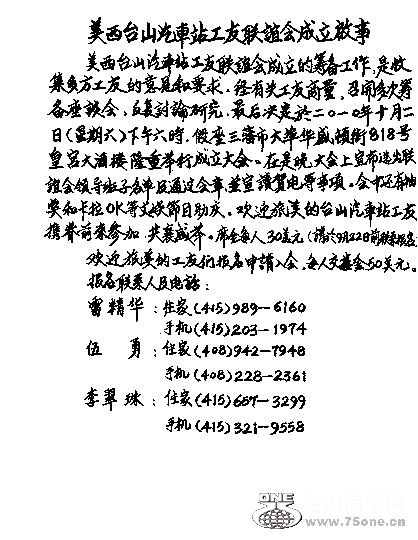 美西台山汽車站工友联誼会成立啟事
美西台山汽車站工友联誼会成立的筹备工作,是收
集多方工友的意见和要求。经有关工友商量,召開多次筹
备座談会,反复討論研究,最后决定於二〇一〇年十月二
日(星期六)下午六時,假座三藩市大埠华盛頓街818号
皇宫大酒楼隆重举行成立大会。在是晚大会上宣布选出联
誼会领导班子名单及通过会章,並宣讀賀电等事項。会中还有抽
奖和卡拉OK等文娱節目助庆。欢迎旅美的台山汽車站工友
携眷前来参加,共襄盛举。席金每人30美元(請於9月22日前联系报名)
欢迎旅美的工友们报名申請入会,每人交基金50美元。
报名联系人及电話:
曾精华:住家(415)989-6160
手机(415)203-1974
伍 勇:住家(408)942-7948
手机(408)228-2361
李翠珠:住家(415)657-3299
手机(415)321-9558
ONE 台山同学网
www.75one.cn